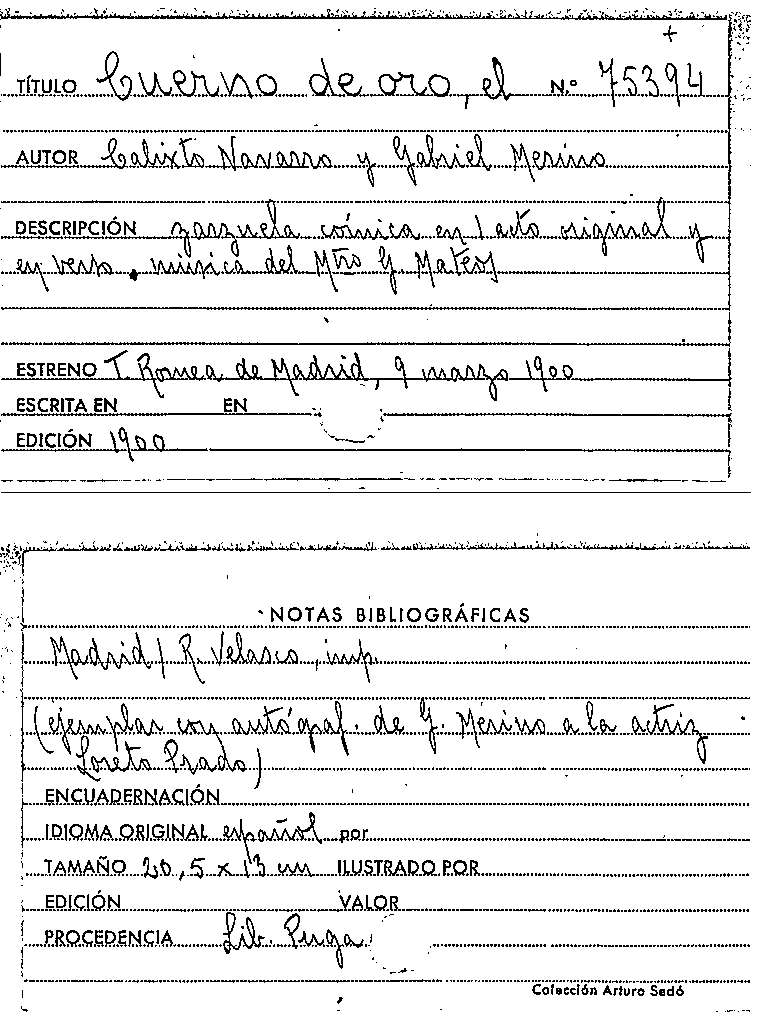 +
TÍTULO Cuerno de oro, el N.º 75394
AUTOR Calixto Navarro y Gabriel Merino
DESCRIPCIÓN zarzuela cómica en 1 acto original y
en verso. música del Mtro G. Mateos
ESTRENO T. Romea de Madrid, 9 marzo 1900
ESCRITA EN EN
EDICIÓN 1900
NOTAS BIBLIOGRÁFICAS
Madrid / R. Velasco, imp.
(ejemplar con autógraf. de G. Merino a la actriz
Loreto Prado)
ENCUADERNACIÓN
IDIOMA ORIGINAL español por
TAMAÑO 20,5 x 13 cm ILUSTRADO POR
EDICIÓN VALOR
PROCEDENCIA Lib. Puga
Colección Arturo Sedó